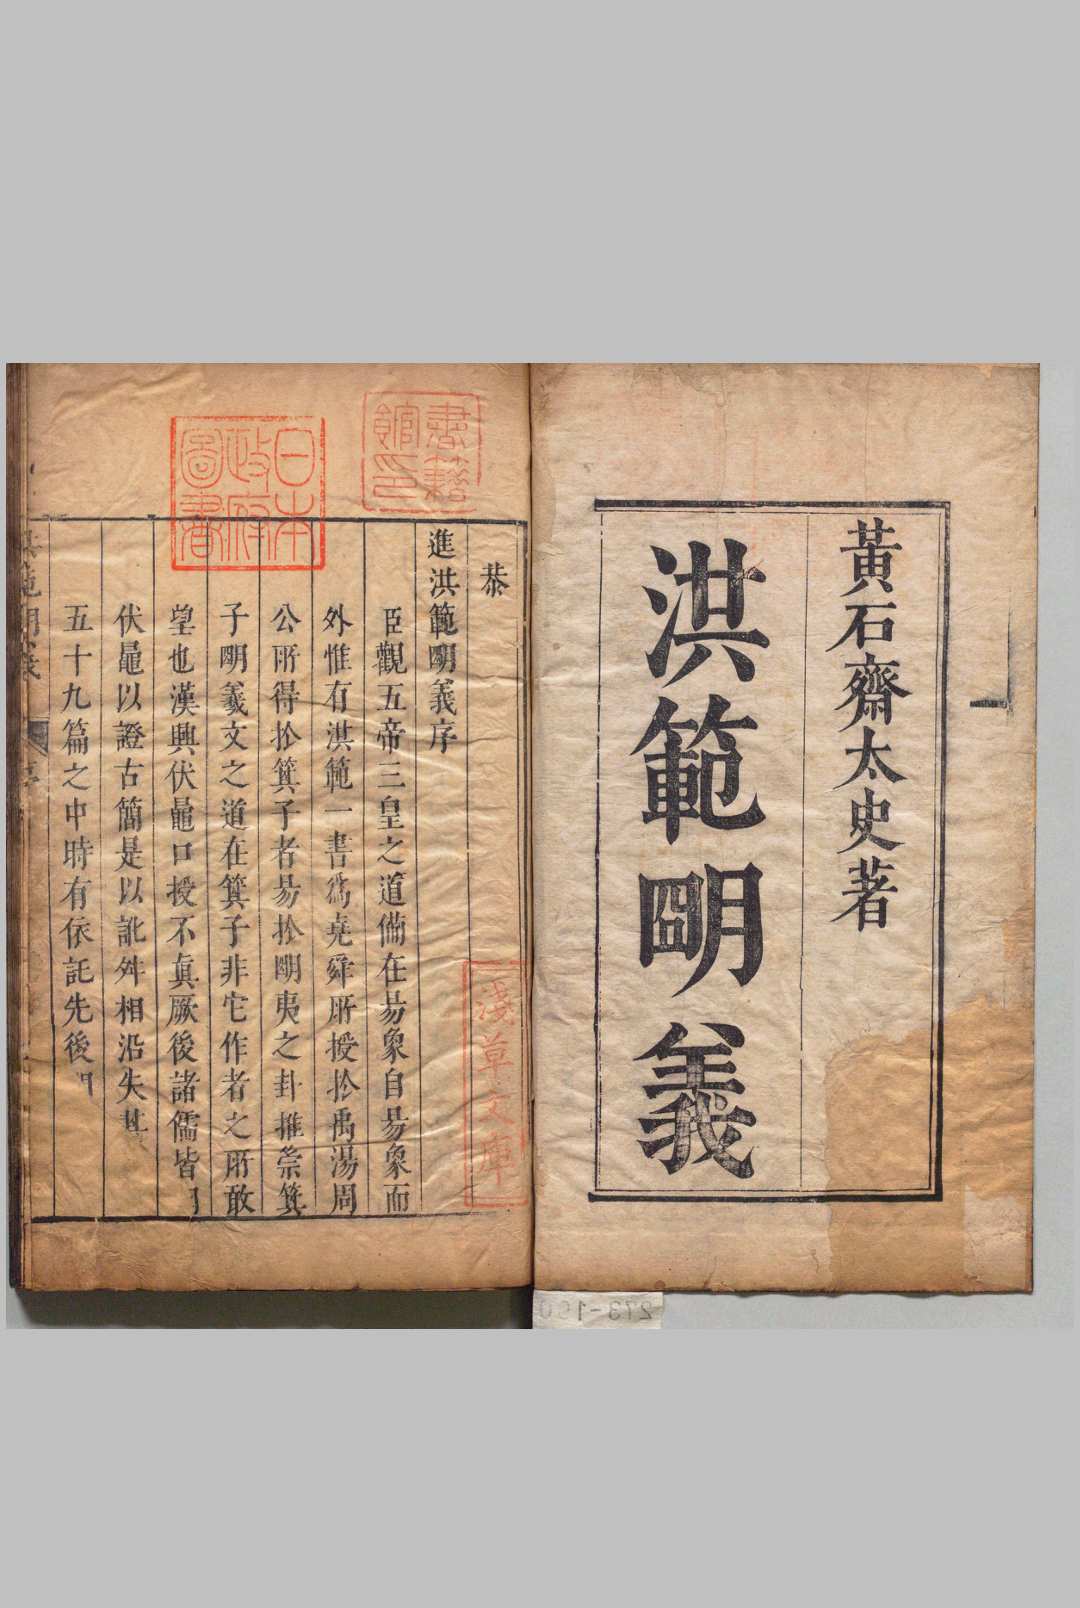 黃石齋太史著
洪範朙義
恭
進洪範朙義序
臣觀五帝三皇之道備在易象自易象而
外惟有洪範一書爲堯舜所授扵禹湯周
公所得扵箕子者易扵朙夷之卦推崇箕
子朙羲文之道在箕子非它作者之所敢
望也漢興伏黽口授不眞厥後諸儒皆
伏黽以證古簡是以訛舛相沿失其
五十九篇之中時有依託先後
書籍館印
日本政府圖書
淺草文庫